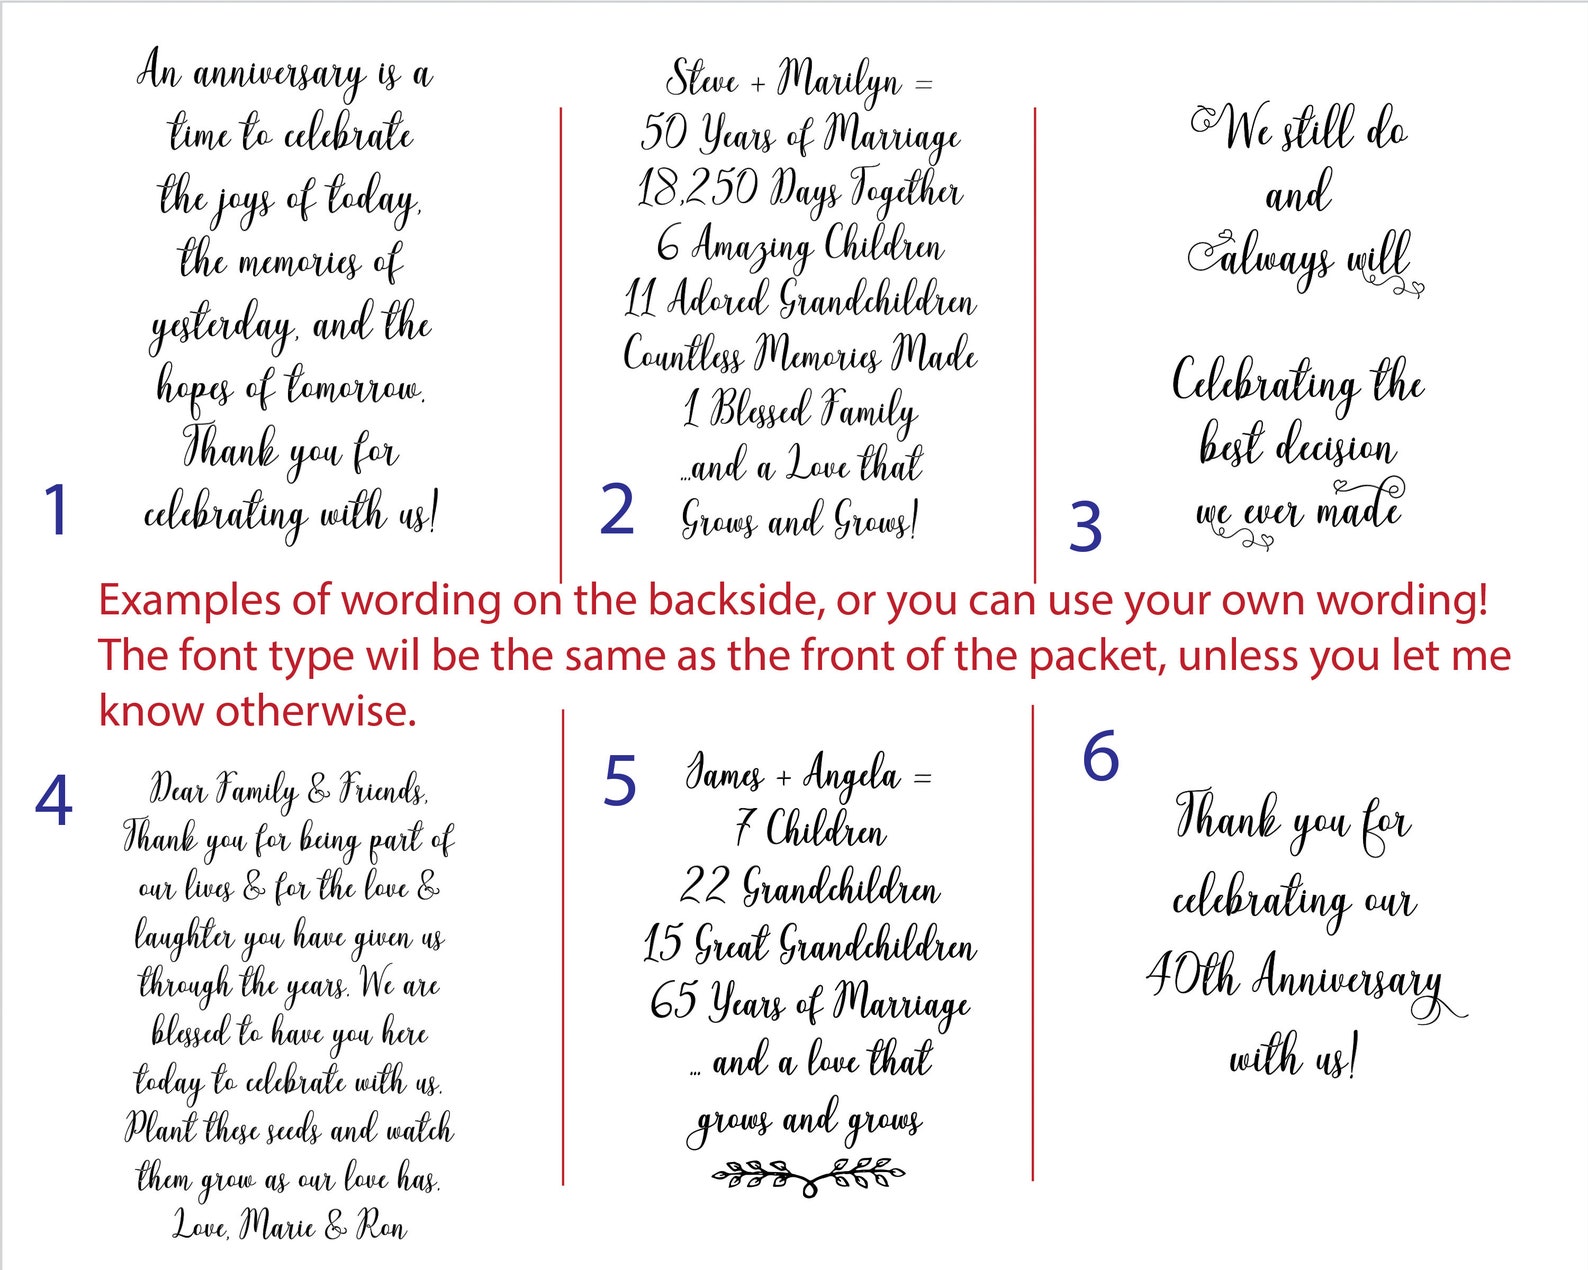 An anniversary is a
time to celebrate
the joys of today,
the memories of
yesterday, and the
hopes of tomorrow.
Thank you for
celebrating with us!
1
Steve + Marilyn =
50 Years of Marriage
18,250 Days Together
6 Amazing Children
11 Adored Grandchildren
Countless Memories Made
1 Blessed Family
...and a Love that
Grows and Grows!
2
We still do
and
always will
Celebrating the
best decision
we ever made
3
Examples of wording on the backside, or you can use your own wording!
The font type wil be the same as the front of the packet, unless you let me
know otherwise.
4
Dear Family & Friends,
Thank you for being part of
our lives & for the love &
laughter you have given us
through the years. We are
blessed to have you here
today to celebrate with us.
Plant these seeds and watch
them grow as our love has.
Love, Marie & Ron
5
James + Angela =
7 Children
22 Grandchildren
15 Great Grandchildren
65 Years of Marriage
... and a love that
grows and grows
6
Thank you for
celebrating our
40th Anniversary
with us!